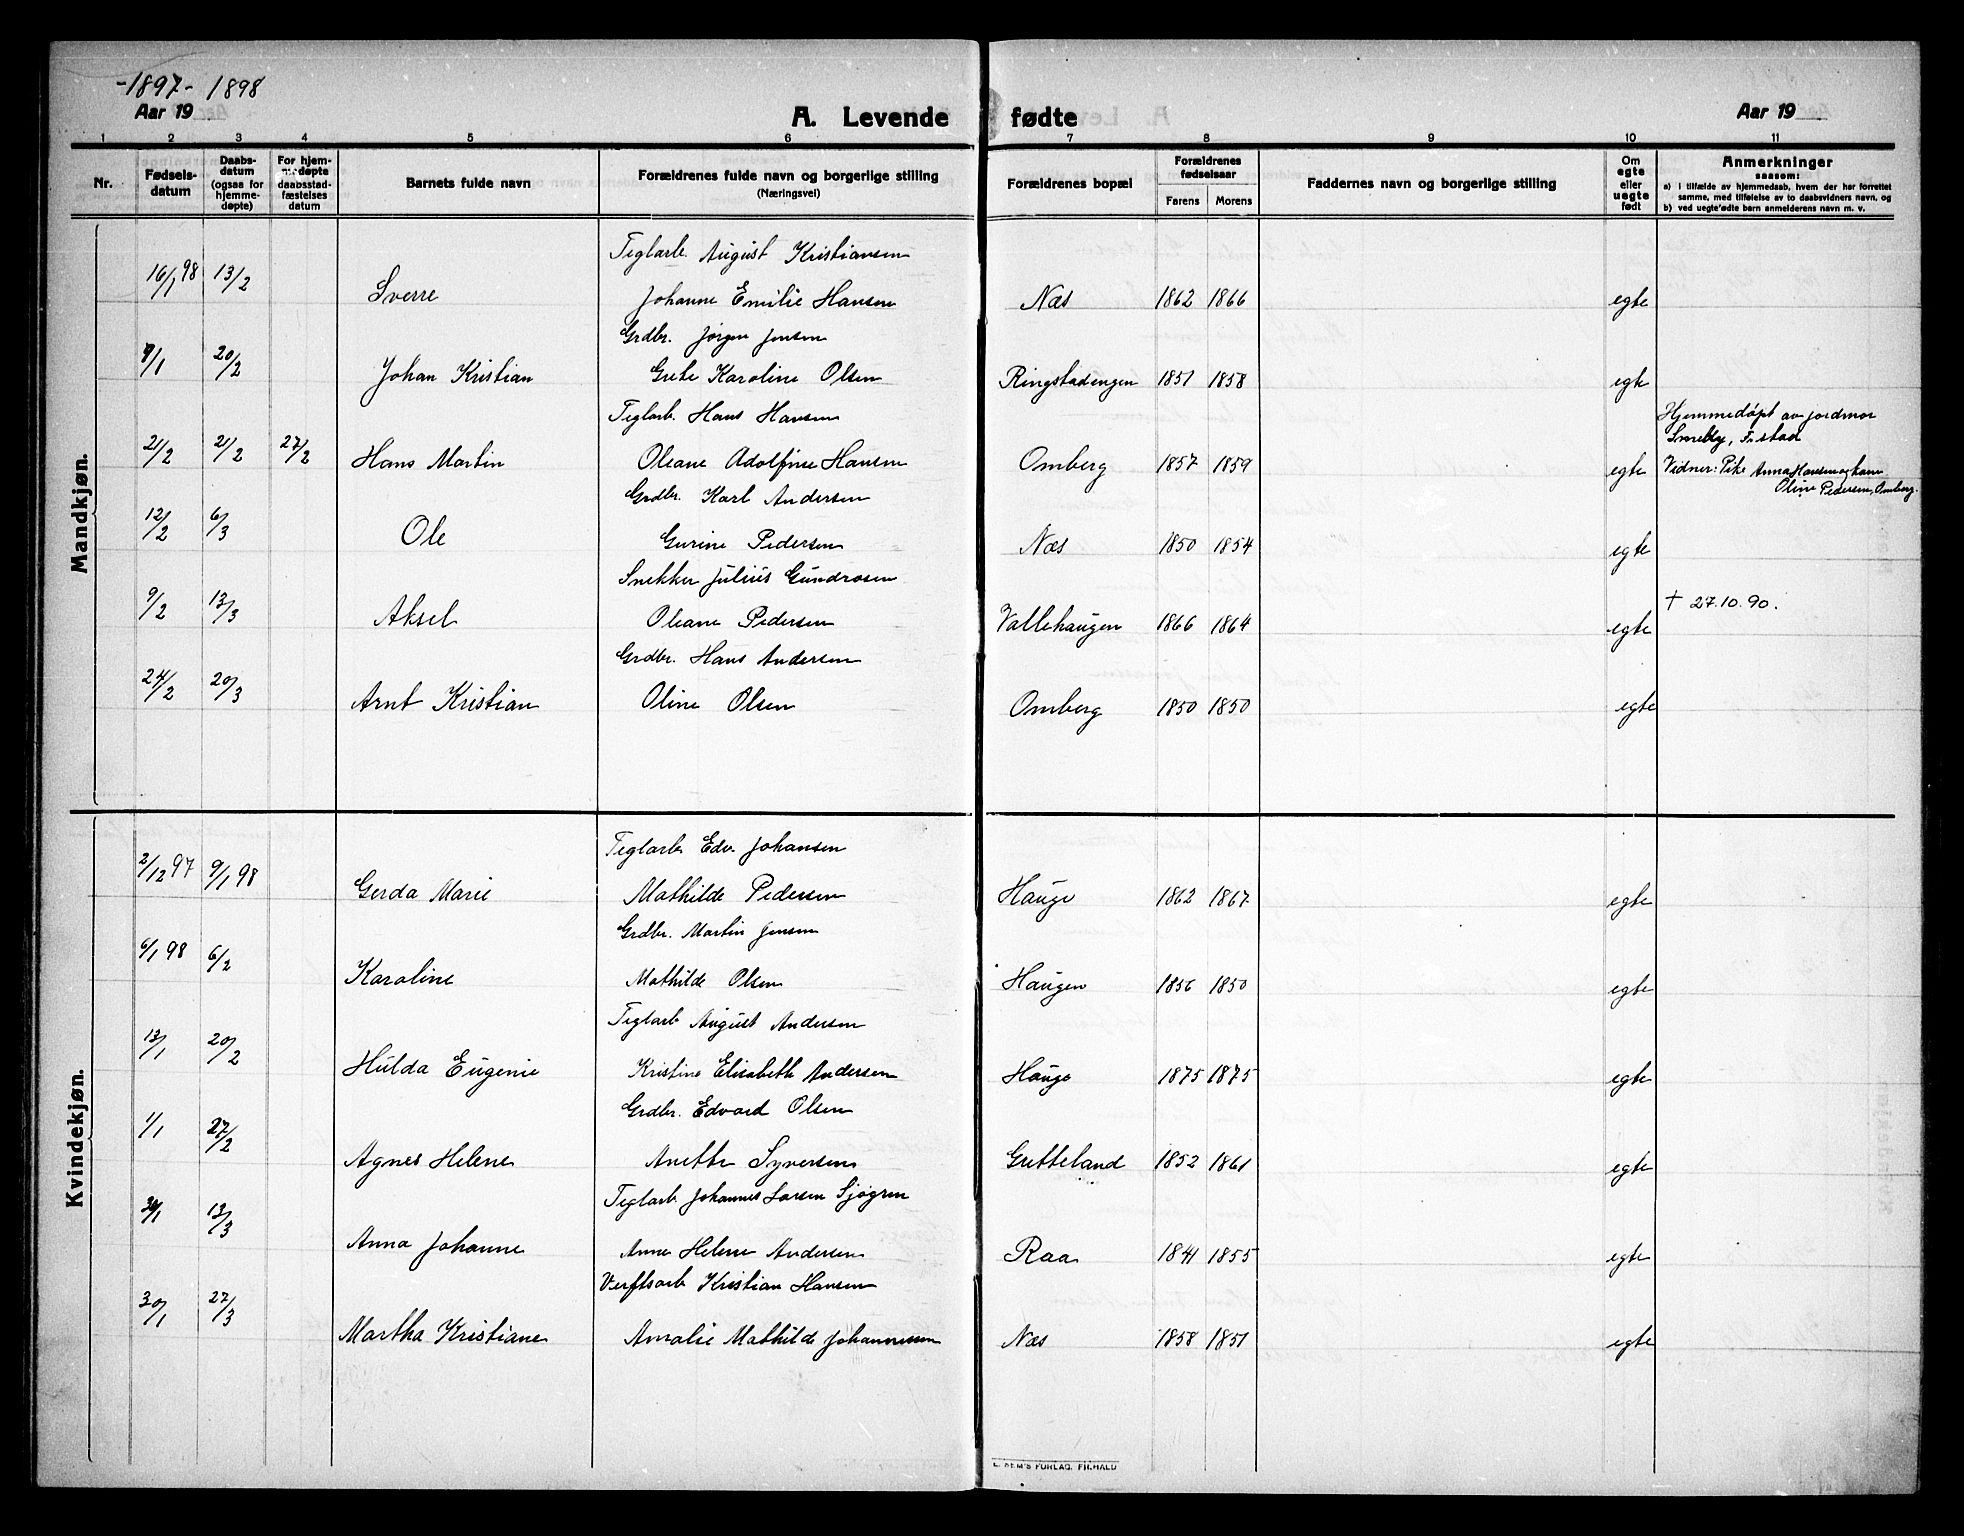 -1897- 1898
Aar 19
A. Levende fødte
Aar 19
1 2 3 4 5 6 7 8 9 10 11
Nr.
Fødselsdatum
Daabsdatum (ogsaa for hjemmedøpte)
For hjemmedøpte daabsstadfæstelses datum
Barnets fulde navn
Forældrenes fulde navn og borgerlige stilling
(Næringsvei)
Forældrenes bopæl
Forældrenes fødselsaar
Farens Morens
Faddernes navn og borgerlige stilling
Om egte eller uegte født
Anmerkninger
saasom:
a) i tilfælde av hjemmedaab, hvem der har forrettet
samme, med tilføielse av to daabsvidners navn, og
b) ved uegte fødte barn anmelderens navn m. v.
Mandkjøn.
Teglarb. August Kristiansen
16/1 98 13/2 Sverre Johanne Emilie Hansen Næs 1862 1866 egte
Grdbr. Jørgen Jensen
9/1 20/2 Johan Kristian Grete Karoline Olsen Ringstadengen 1851 1858 egte
Teglarb. Hans Hansen
Hjemmedøpt av jordmor
Smeby, F.stad
21/2 21/2 27/2 Hans Martin Oleane Adolfine Hansen Omberg 1857 1859 egte Vidner: Pike Anna Hansen og kone
Oline Pedersen, Omberg.
Grdbr. Karl Andersen
12/2 6/3 Ole Gurine Pedersen Næs 1850 1854 egte
Snekker Julius Gundrosen
9/2 13/3 Aksel Oleane Pedersen Vallehaugen 1866 1864 egte † 27.10.90.
Grdbr. Hans Andersen
24/2 20/3 Arnt Kristian Oline Olsen Omberg 1850 1850 egte
Kvindekjøn.
Teglarb. Edv. Johansen
2/12 97 9/1 98 Gerda Marie Mathilde Pedersen Hauge 1862 1867 egte
Grdbr. Martin Jensen
6/1 98 6/2 Karoline Mathilde Olsen Haugen 1856 1850 egte
Teglarb August Andersen
13/1 20/2 Hulda Eugenie Kristine Elisabeth Andersen Hauge 1875 1875 egte
Grdbr. Edvard Olsen
1/1 27/2 Agnes Helene Anette Syversen Gretteland 1852 1861 egte
Teglarb. Johannes Larsen Sjøgren
13/3 Anna Johanne Anne Helene Andersen Raa 1841 1855 egte
Verftsarb Kristian Hansen
30/1 27/3 Martha Kristiane Amalie Mathilde Johannessen Næs 1858 1851 egte
E. SEM'S FORLAG, FR.HALD